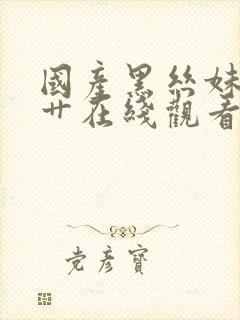 國產黑絲妹
艹在綫觀看
党彦寶